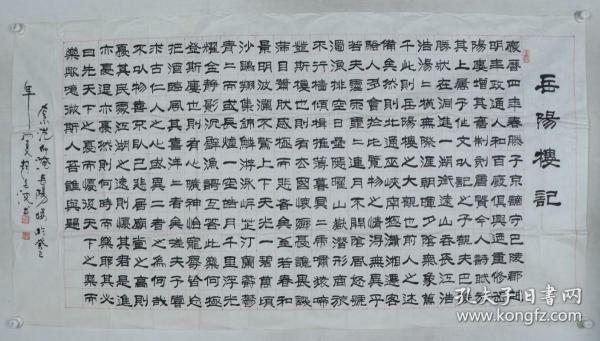 岳陽樓記
慶曆四年春滕子京謫守巴陵郡越
明年政通人和百廢具興乃重修岳
陽樓增其舊制刻唐賢今人詩賦於
其上屬予作文以記之予觀夫巴陵
勝狀在洞庭一湖銜遠山吞長江浩
浩湯〻橫無際涯朝暉夕陰氣象萬
千此則岳陽樓之大觀也前人之述
備矣然則北通巫峽南極瀟湘遷客
騷人多會於此覽物之情得無異乎
若夫霪雨霏〻連月不開陰風怒號
濁浪排空日星隱曜山嶽潛形商旅
不行檣傾楫摧薄暮冥〻虎嘯猿啼
登斯樓也則有去國懷鄉憂讒畏譏
滿目蕭然感極而悲者矣至若春和
景明波瀾不驚上下天光一碧萬頃
沙鷗翔集錦鱗游泳岸芷汀蘭郁郁
青〻而或長煙一空皓月千里浮光
耀金靜影沉璧漁歌互答此樂何極
登斯樓也則有心曠神怡寵辱偕忘
把酒臨風其喜洋〻者矣嗟夫予嘗
求古仁人之心或異二者之為何哉
不以物喜不以己悲居廟堂之高則
憂其民處江湖之遠則憂其君是進
亦憂退亦憂然則何時而樂耶其必
曰先天下之憂而憂後天下之樂而
樂歟噫微斯人吾誰與歸
范仲淹岳陽樓記於癸巳
年
孔夫子旧书网
www.kongfz.com